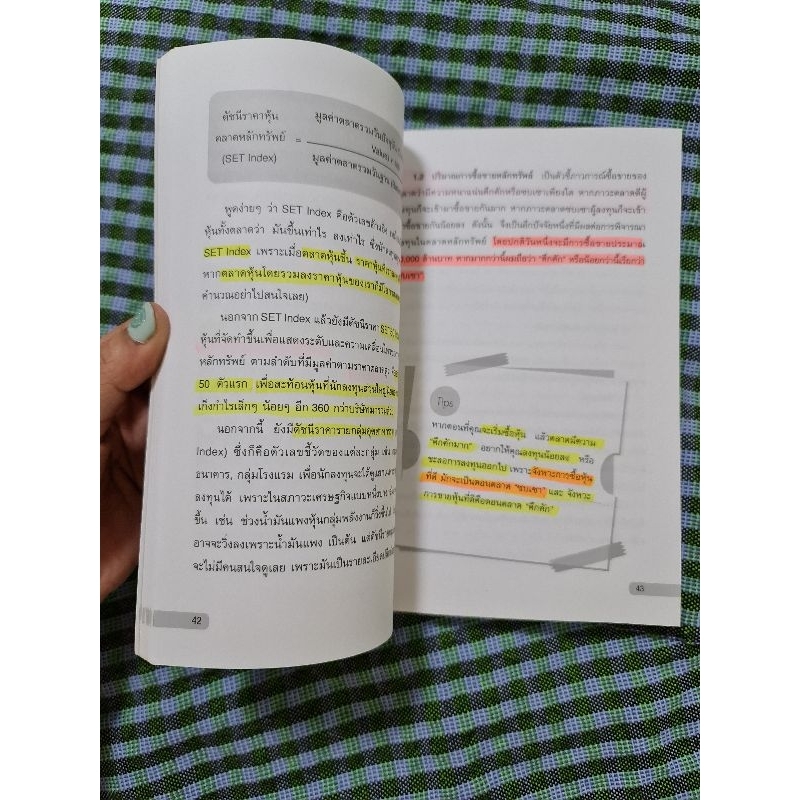 ดัชนีราคาหุ้น
ตลาดหลักทรัพย์
(SET Index)
=
มูลค่าตลาดรวมวันปัจจุบัน
มูลค่าตลาดรวมวันฐาน
พูดง่ายๆ ว่า SET Index คือตัวเลข
หุ้นทั้งตลาดว่า มันขึ้นเท่าไร ลงเท่าไร
SET Index เพราะเมื่อตลาดหุ้นขึ้น ราคาหุ้น
หากตลาดหุ้นโดยรวมลงราคาหุ้นของเราก็มี
คำนวณอย่าไปสนใจเลย)
นอกจาก SET Index แล้วยังมีดัชนีราคา
หุ้นที่จัดทำขึ้นเพื่อแสดงระดับและความเคลื่อนไหว
หลักทรัพย์ ตามลำดับที่มีมูลค่าตามราคาตลาด
50 ตัวแรก เพื่อสะท้อนหุ้นที่นักลงทุนส่วนใหญ่
เก็งกำไรเล็กๆ น้อยๆ อีก 360 กว่าบริษัท
นอกจากนี้ ยังมีดัชนีราคารายกลุ่มอุตสาหกรรม
Index) ซึ่งก็คือตัวเลขชี้วัดของแต่ละกลุ่ม เช่น
ธนาคาร, กลุ่มโรงแรม เพื่อนักลงทุนจะได้
ลงทุนได้ เพราะในสภาวะเศรษฐกิจแบบหนึ่ง
ขึ้น เช่น ช่วงน้ำมันแพงหุ้นกลุ่มพลังงานก็วิ่งขึ้น
อาจจะวิ่งลงเพราะน้ำมันแพง เป็นต้น แต่ดัชนี
จะไม่มีคนสนใจดูเลย เพราะมันเป็นรายละเอียด
42
1.2 ปริมาณการซื้อขายหลักทรัพย์ เป็นตัวชี้ภาวการณ์ซื้อขายของ
ตลาดว่ามีความหนาแน่นคึกคักหรือซบเซาเพียงใด หากภาวะตลาดดีผู้
ลงทุนก็จะเข้ามาซื้อขายกันมาก หากภาวะตลาดซบเซาผู้ลงทุนก็จะเข้า
ซื้อขายกันน้อยลง ดังนั้น จึงเป็นอีกปัจจัยหนึ่งที่มีผลต่อการพิจารณา
ลงทุนในตลาดหลักทรัพย์ โดยปกติวันหนึ่งจะมีการซื้อขายประมาณ
,000 ล้านบาท หากมากกว่านี้ผมถือว่า "คึกคัก" หรือน้อยกว่านี้เรียกว่า
"ซบเซา"
Tips
หากตอนที่คุณจะเริ่มซื้อหุ้น แล้วตลาดมีความ
"คึกคักมาก" อยากให้คุณลงทุนน้อยลง หรือ
ชะลอการลงทุนออกไป เพราะจังหวะการซื้อหุ้น
ที่ดี มักจะเป็นตอนตลาด "ซบเซา" และ จังหวะ
การขายหุ้นที่ดีคือตอนตลาด "คึกคัก"
43